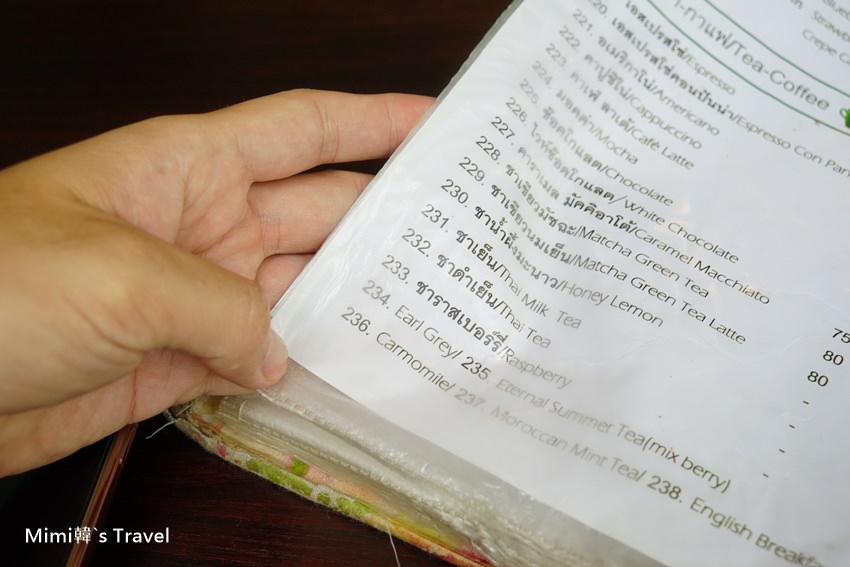 Strawb
Crepe Ca
า-กาแฟ/Tea-Coffee
220. เอสเปรสโซ่/Espresso
221. เอสเปรสโซ่คอนปันน่า/Espresso Con Pan
222. อเมริกาโน่/Americano
223. คาปูชิโน่/Cappuccino
224. คาเฟ่ ลาเต้/Café Latte
225. มอคค่า/Mocha
226. ช็อคโกแลต/Chocolate
227. ไวท์ช็อคโกแลต/White Chocolate
228. คาราเมล มัคคิอาโต้/Caramel Macchiato
229. ชาเขียวมัชฉะ/Matcha Green Tea
230. ชาเขียวนมเย็น/Matcha Green Tea Latte 75
231. ชาน้ำผึ้งมะนาว/Honey Lemon 80
232. ชาเย็น/Thai Milk Tea 80
233. ชาดำเย็น/Thai Tea -
ชาราสเบอร์รี่/Raspberry -
234. Earl Grey/ 235. Eternal Summer Tea(mix berry) -
236. Carmomile/ 237. Moroccan Mint Tea/ 238. English Breakfa
Mimi韓`s Travel